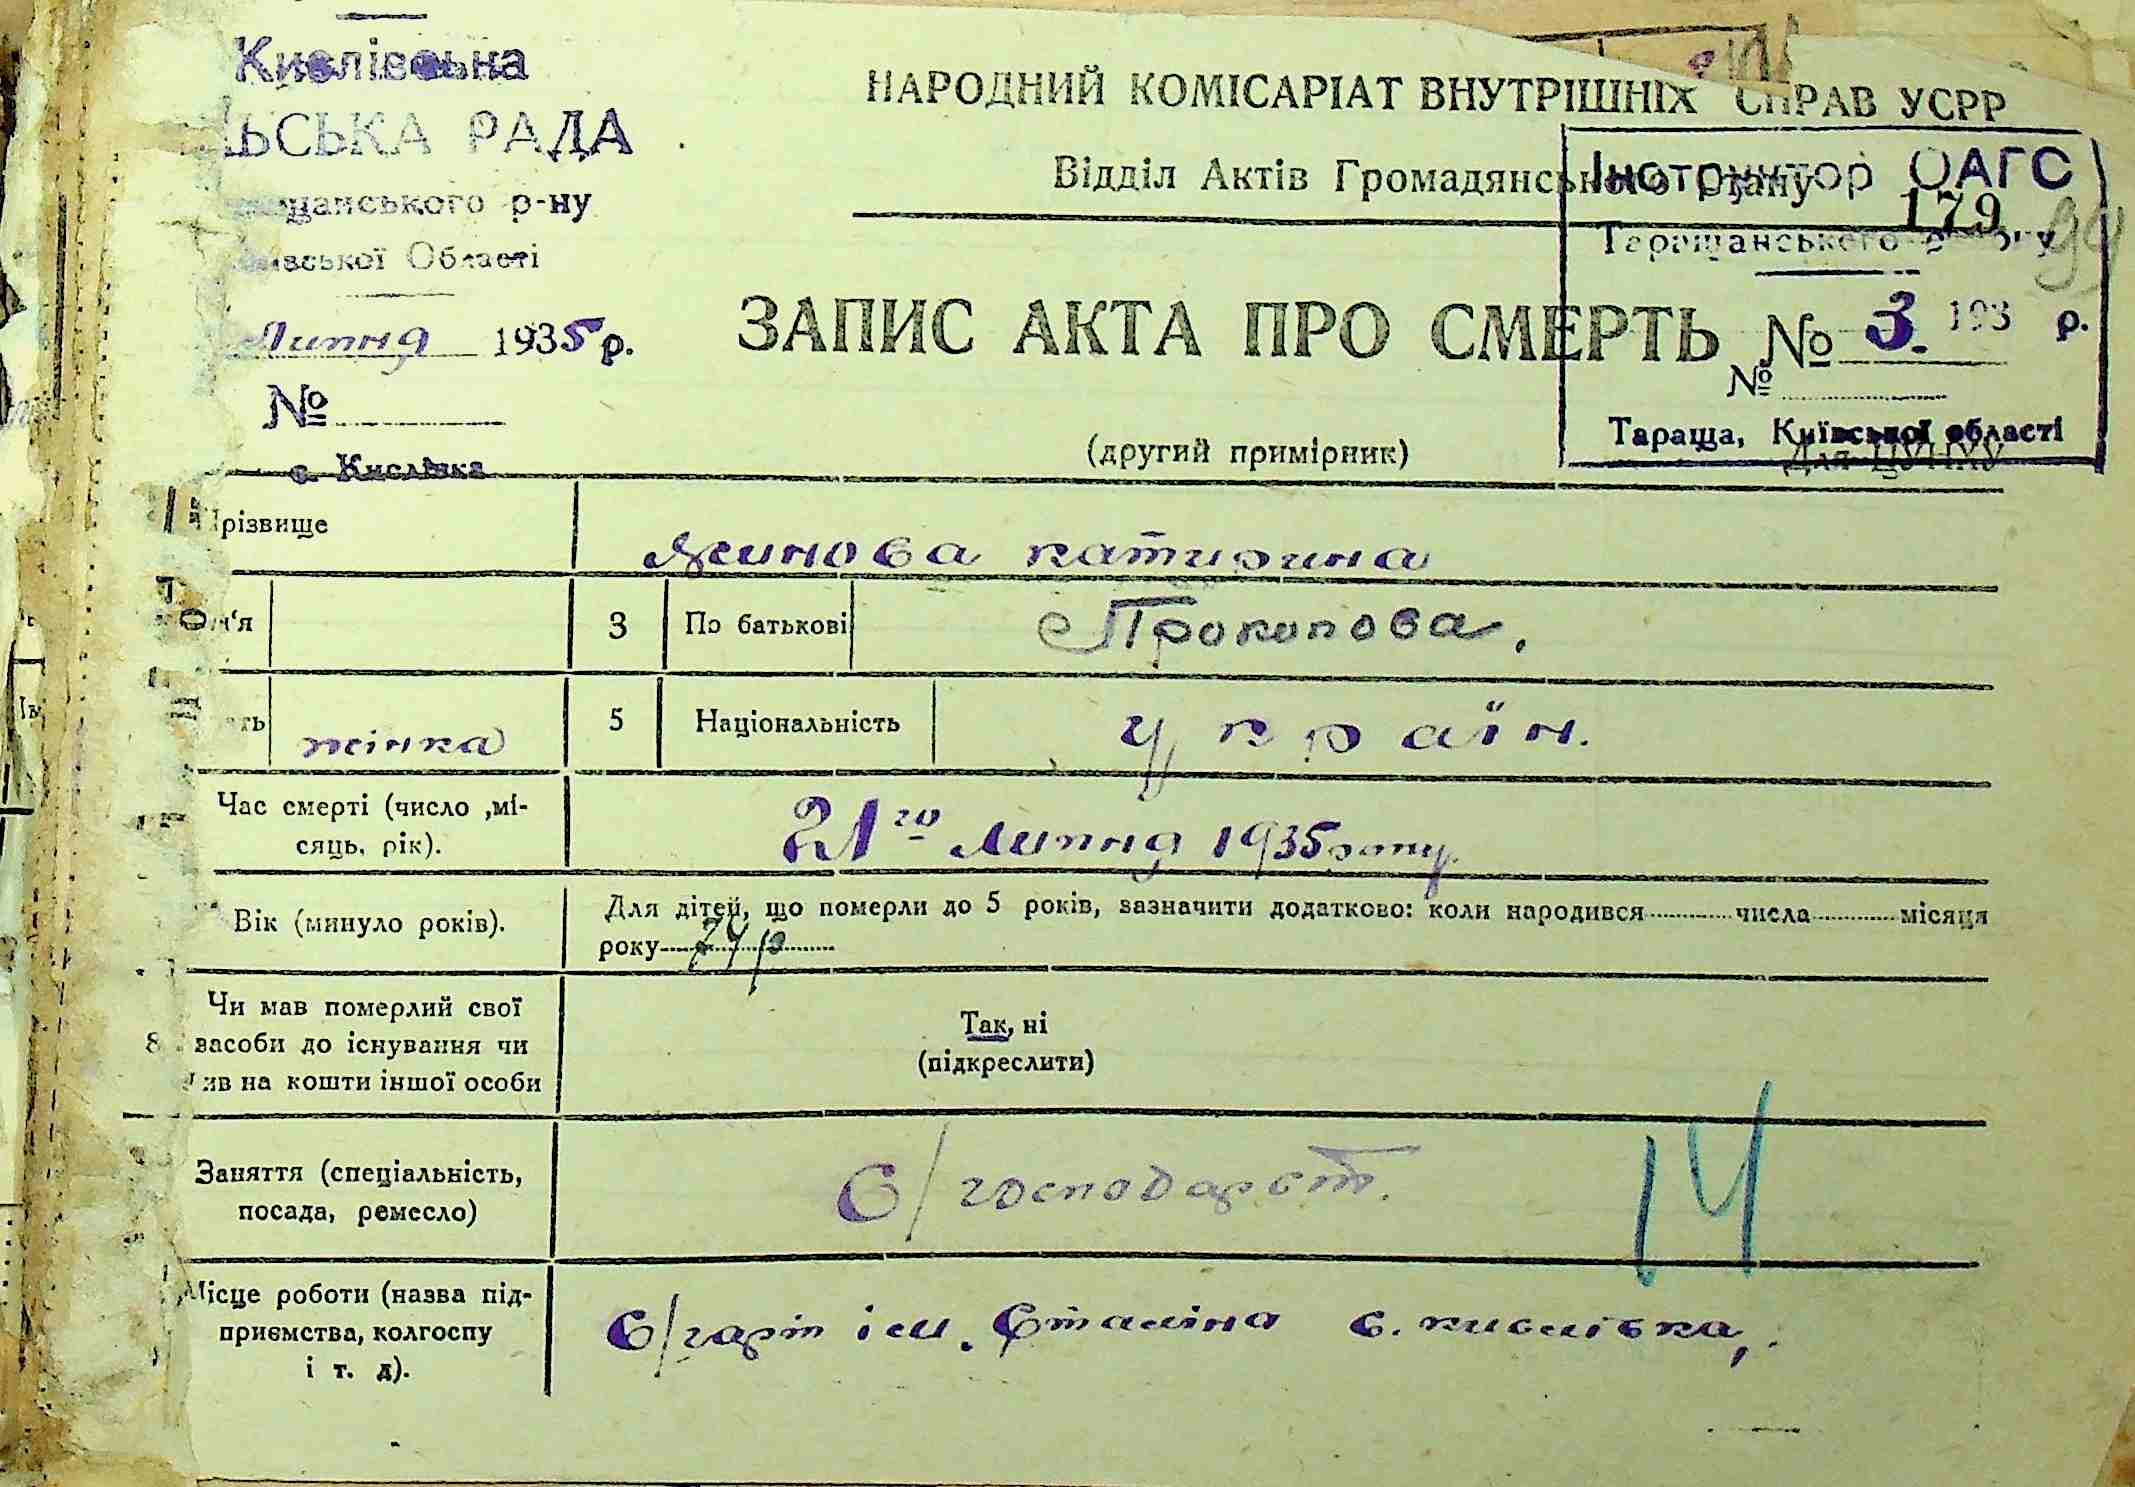 Кислівська
ЬСЬКА РАДА
щанського р-ну
ївської Області
Липня 1935 р.
№
с. Кислівка
НАРОДНИЙ КОМІСАРІАТ ВНУТРІШНІХ СПРАВ УСРР
Відділ Актів Громадянського Стану
179
99
Інструктор ОАГС
Таращанського р-ону
193 р.
№
Тараща, Київської області
ЗАПИС АКТА ПРО СМЕРТЬ № 3.
(другий примірник)
Для ЦУНХУ
Прізвище
Якимова Катирина
м'я
3 По батькові Прокопова,
ать жінка
5 Національність Україн.
Час смерті (число ,мі-
сяць, рік).
21го Липня 1935 року.
Вік (минуло років).
Для дітей, що померли до 5 років, зазначити додатково: коли народився числа місяця
року 74 р
8 Чи мав померлий свої
засоби до існування чи
жив на кошти іншої особи
Так, ні
(підкреслити)
Заняття (спеціальність,
посада, ремесло)
С/господарст.
14
Місце роботи (назва під-
приємства, колгоспу
і т. д).
С/гарт ім. Сталіна с. Кислівка,